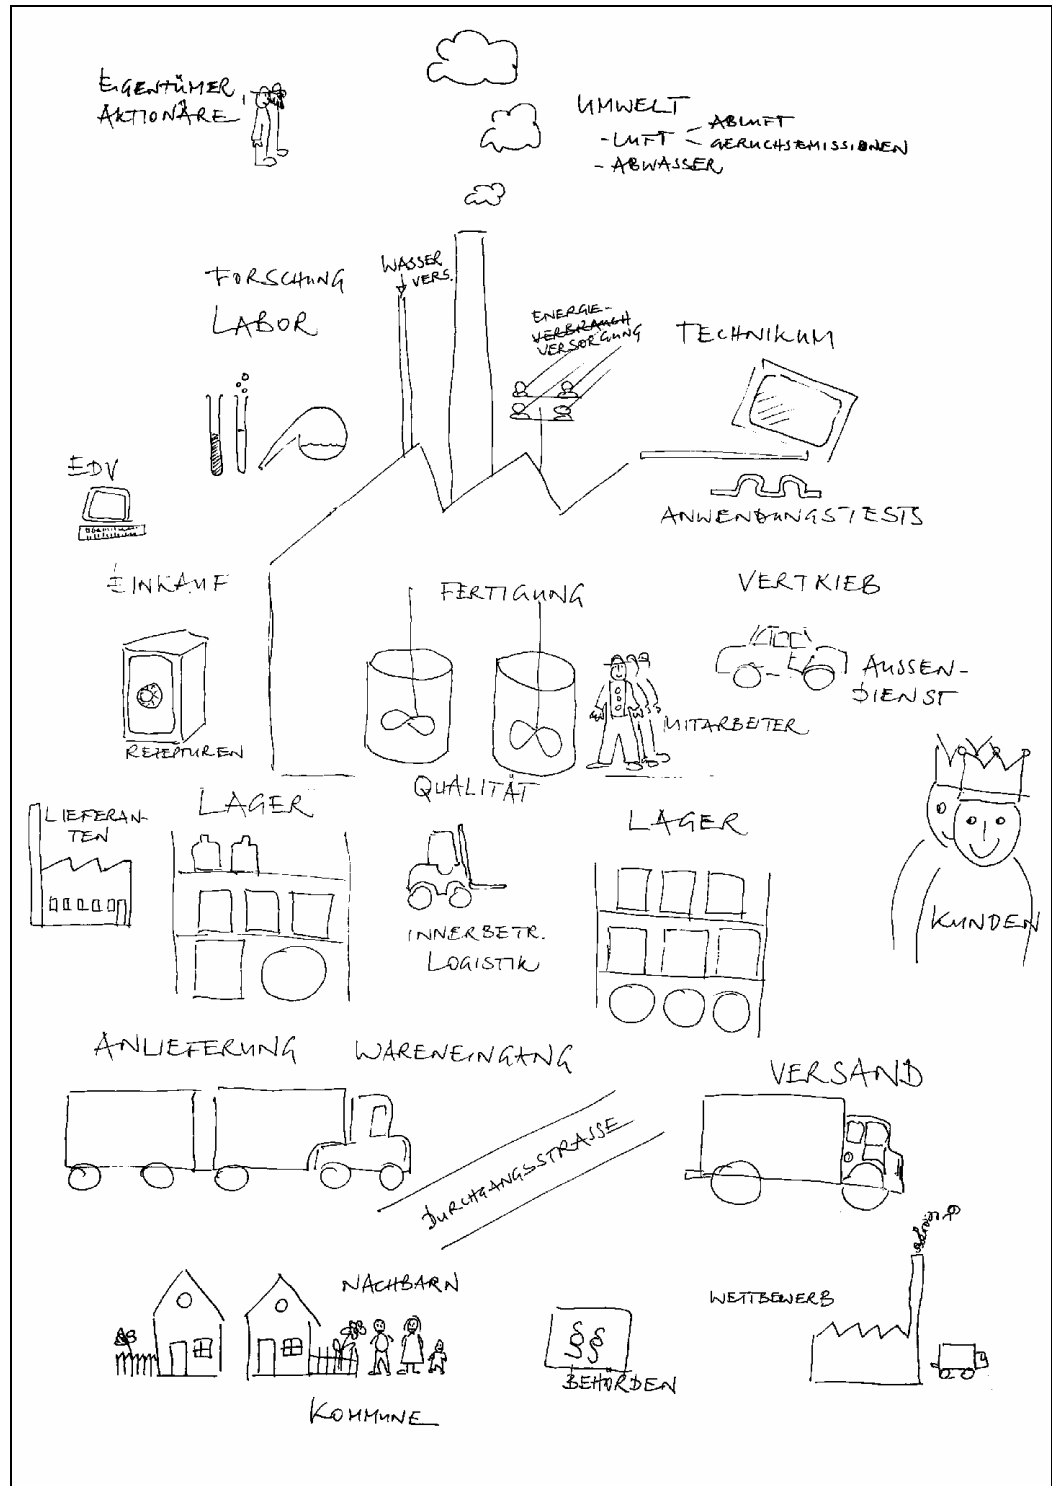 EIGENTÜMER,
AKTIONÄRE
UMWELT
- LUFT < ABLUFT
GERUCHSEMISSIONEN
- ABWASSER
FORSCHUNG
LABOR
WASSER
VERS.
ENERGIE-
VERBRAUCH
VERSORGUNG
TECHNIKUM
EDV
ANWENDUNGSTESTS
EINKAUF
FERTIGUNG
VERTRIEB
AUSSEN-
DIENST
MITARBEITER
REZEPTUREN
QUALITÄT
LIEFERAN-
TEN
LAGER
LAGER
INNERBETR.
LOGISTIK
KUNDEN
ANLIEFERUNG WARENEINGANG
VERSAND
DURCHGANGSSTRASSE
NACHBARN
WETTBEWERB
§§
§§
BEHÖRDEN
KOMMUNE